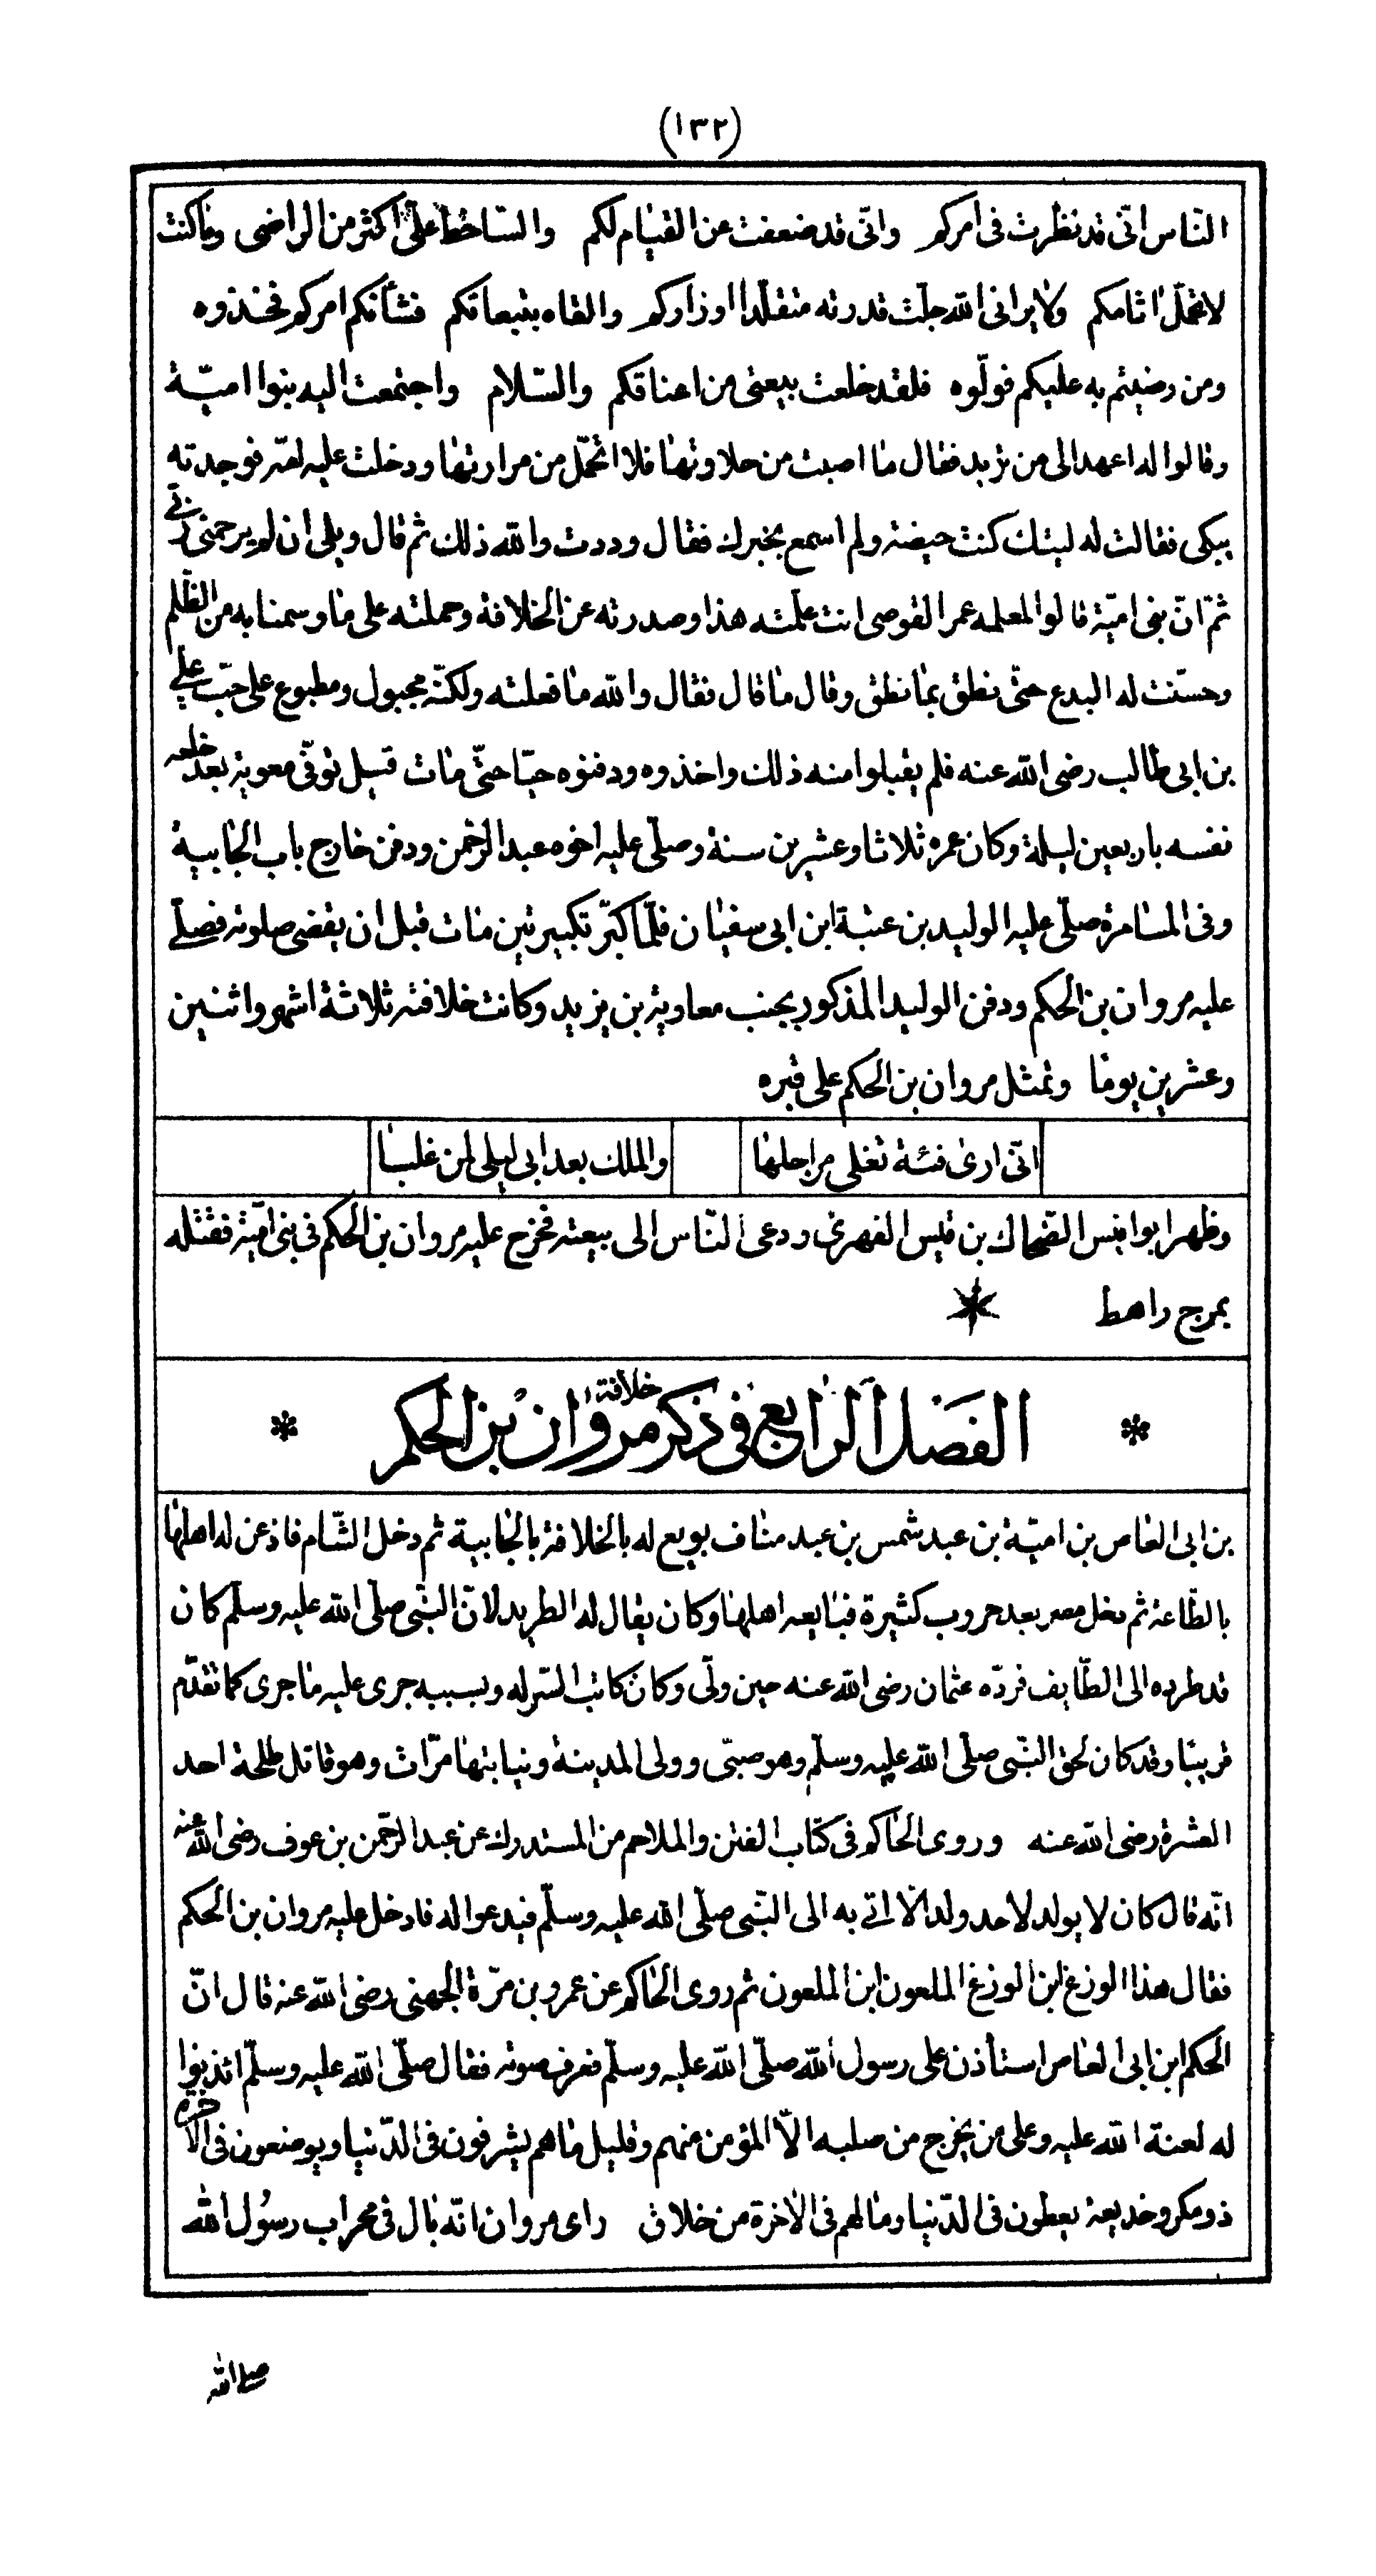 (١٣٢)
النّاس انّى قد نظرت فى امركم وانّى قد ضعفت عن القيام لكم والسّاخط علىّ اكثر من الراضى وما كنت
لاتحمّل اثامكم ولا يرانى الله جلّت قدرته متقلّدا اوزاركم والقاه بتبعاتكم فشأنكم امركم فخذوه
ومن رضيتم به عليكم فولّوه فلقد خلعت بيعتى من اعناقكم والسّلام واجتمعت اليه بنوا اميّة
وقالوا له اعهد الى من تريد فقال ما اصبت من حلاوتها فلا اتحمّل من مرارتها ودخلت عليه امّه فوجدته
يبكى فقالت له ليتك كنت حيضة ولم اسمع بخبرك فقال وددت والله ذلك ثم قال ويلى ان لم يرحمنى ربّى
ثمّ انّ بنى اميّة قالوا لمعلمه عمر القوصى انت علّمته هذا وصدرته عن الخلافة وحملته على ما وسمنا به من الظّلم
وحسّنت له البدع حتى نطق بما نطق وقال ما قال فقال والله ما فعلته ولكنّه مجبول ومطبوع على حبّ على
بن ابى طالب رضى الله عنه فلم يقبلوا منه ذلك واخذوه ودفنوه حيّا حتّى مات قيل توفّى معوية بعد خلعه
نفسه باربعين ليلة وكان عمره ثلاثا وعشرين سنة وصلّى عليه اخوه عبد الرحمن ودفن خارج باب الجابية
وفى المسامرة صلّى عليه الوليد بن عتبة ابن ابى سفيان فلمّا كبّر تكبيرتين مات قبل ان يقضى صلوته فصلّى
عليه مروان بن الحكم ودفن الوليد المذكور بجنب معاوية بن يزيد وكانت خلافته ثلاثة اشهر واثنين
وعشرين يوما وتمثل مروان بن الحكم على قبره
انّى ارى فتنة تغلى مراجلها والملك بعد ابى ليلى لمن غلبا
وظهر ابوانيس الضّحاك بن قيس الفهرى ودعى النّاس الى بيعته فخرج عليه مروان بن الحكم فى بنى اميّة فقتله
بمرج راهط
الفصل الرابع فى ذكر خلافة مروان بن الحكم
بن ابى العاص بن اميّة بن عبد شمس بن عبد مناف بويع له بالخلافة بالجابية ثم دخل الشّام فاذعن له اهلها
بالطّاعة ثم دخل مصر بعد حروب كثيرة فبايعه اهلها وكان يقال له الطريد لانّ النبّى صلّى الله عليه وسلّم كان
قد طرده الى الطّايف فردّه عثمان رضى الله عنه حين ولّى وكان كاتب السّر له وبسببه جرى عليه ما جرى كما تقدّم
قريبا وقد كان لحق النبّى صلّى الله عليه وسلّم وهو صبّى وولى المدينة ونيابتها مرّات وهو قاتل طلحة احد
العشرة رضى الله عنه وروى الحاكم فى كتاب الفتن والملاحم من المستدرك عن عبد الرحمن بن عوف رضى الله عنه
انّه قال كان لا يولد لاحد ولد الّا اتى به الى النبّى صلّى الله عليه وسلّم فيدعو له فادخل عليه مروان بن الحكم
فقال هذا الوزغ ابن الوزغ الملعون ابن الملعون ثم روى الحاكم عن عمرو بن مرّة الجهنى رضى الله عنه قال انّ
الحكم ابن ابى العاص استأذن على رسول الله صلّى الله عليه وسلّم فعرف صوته فقال صلّى الله عليه وسلّم ائذنوا
له لعنة الله عليه وعلى من يخرج من صلبه الّا المؤمن منهم وقليل ما هم يشرفون فى الدّنيا ويوضعون فى الآخرة
ذو مكر وخديعة يعطون فى الدّنيا وما لهم فى الاخرة من خلاق راى مروان انّه بال فى محراب رسول الله
صلى الله